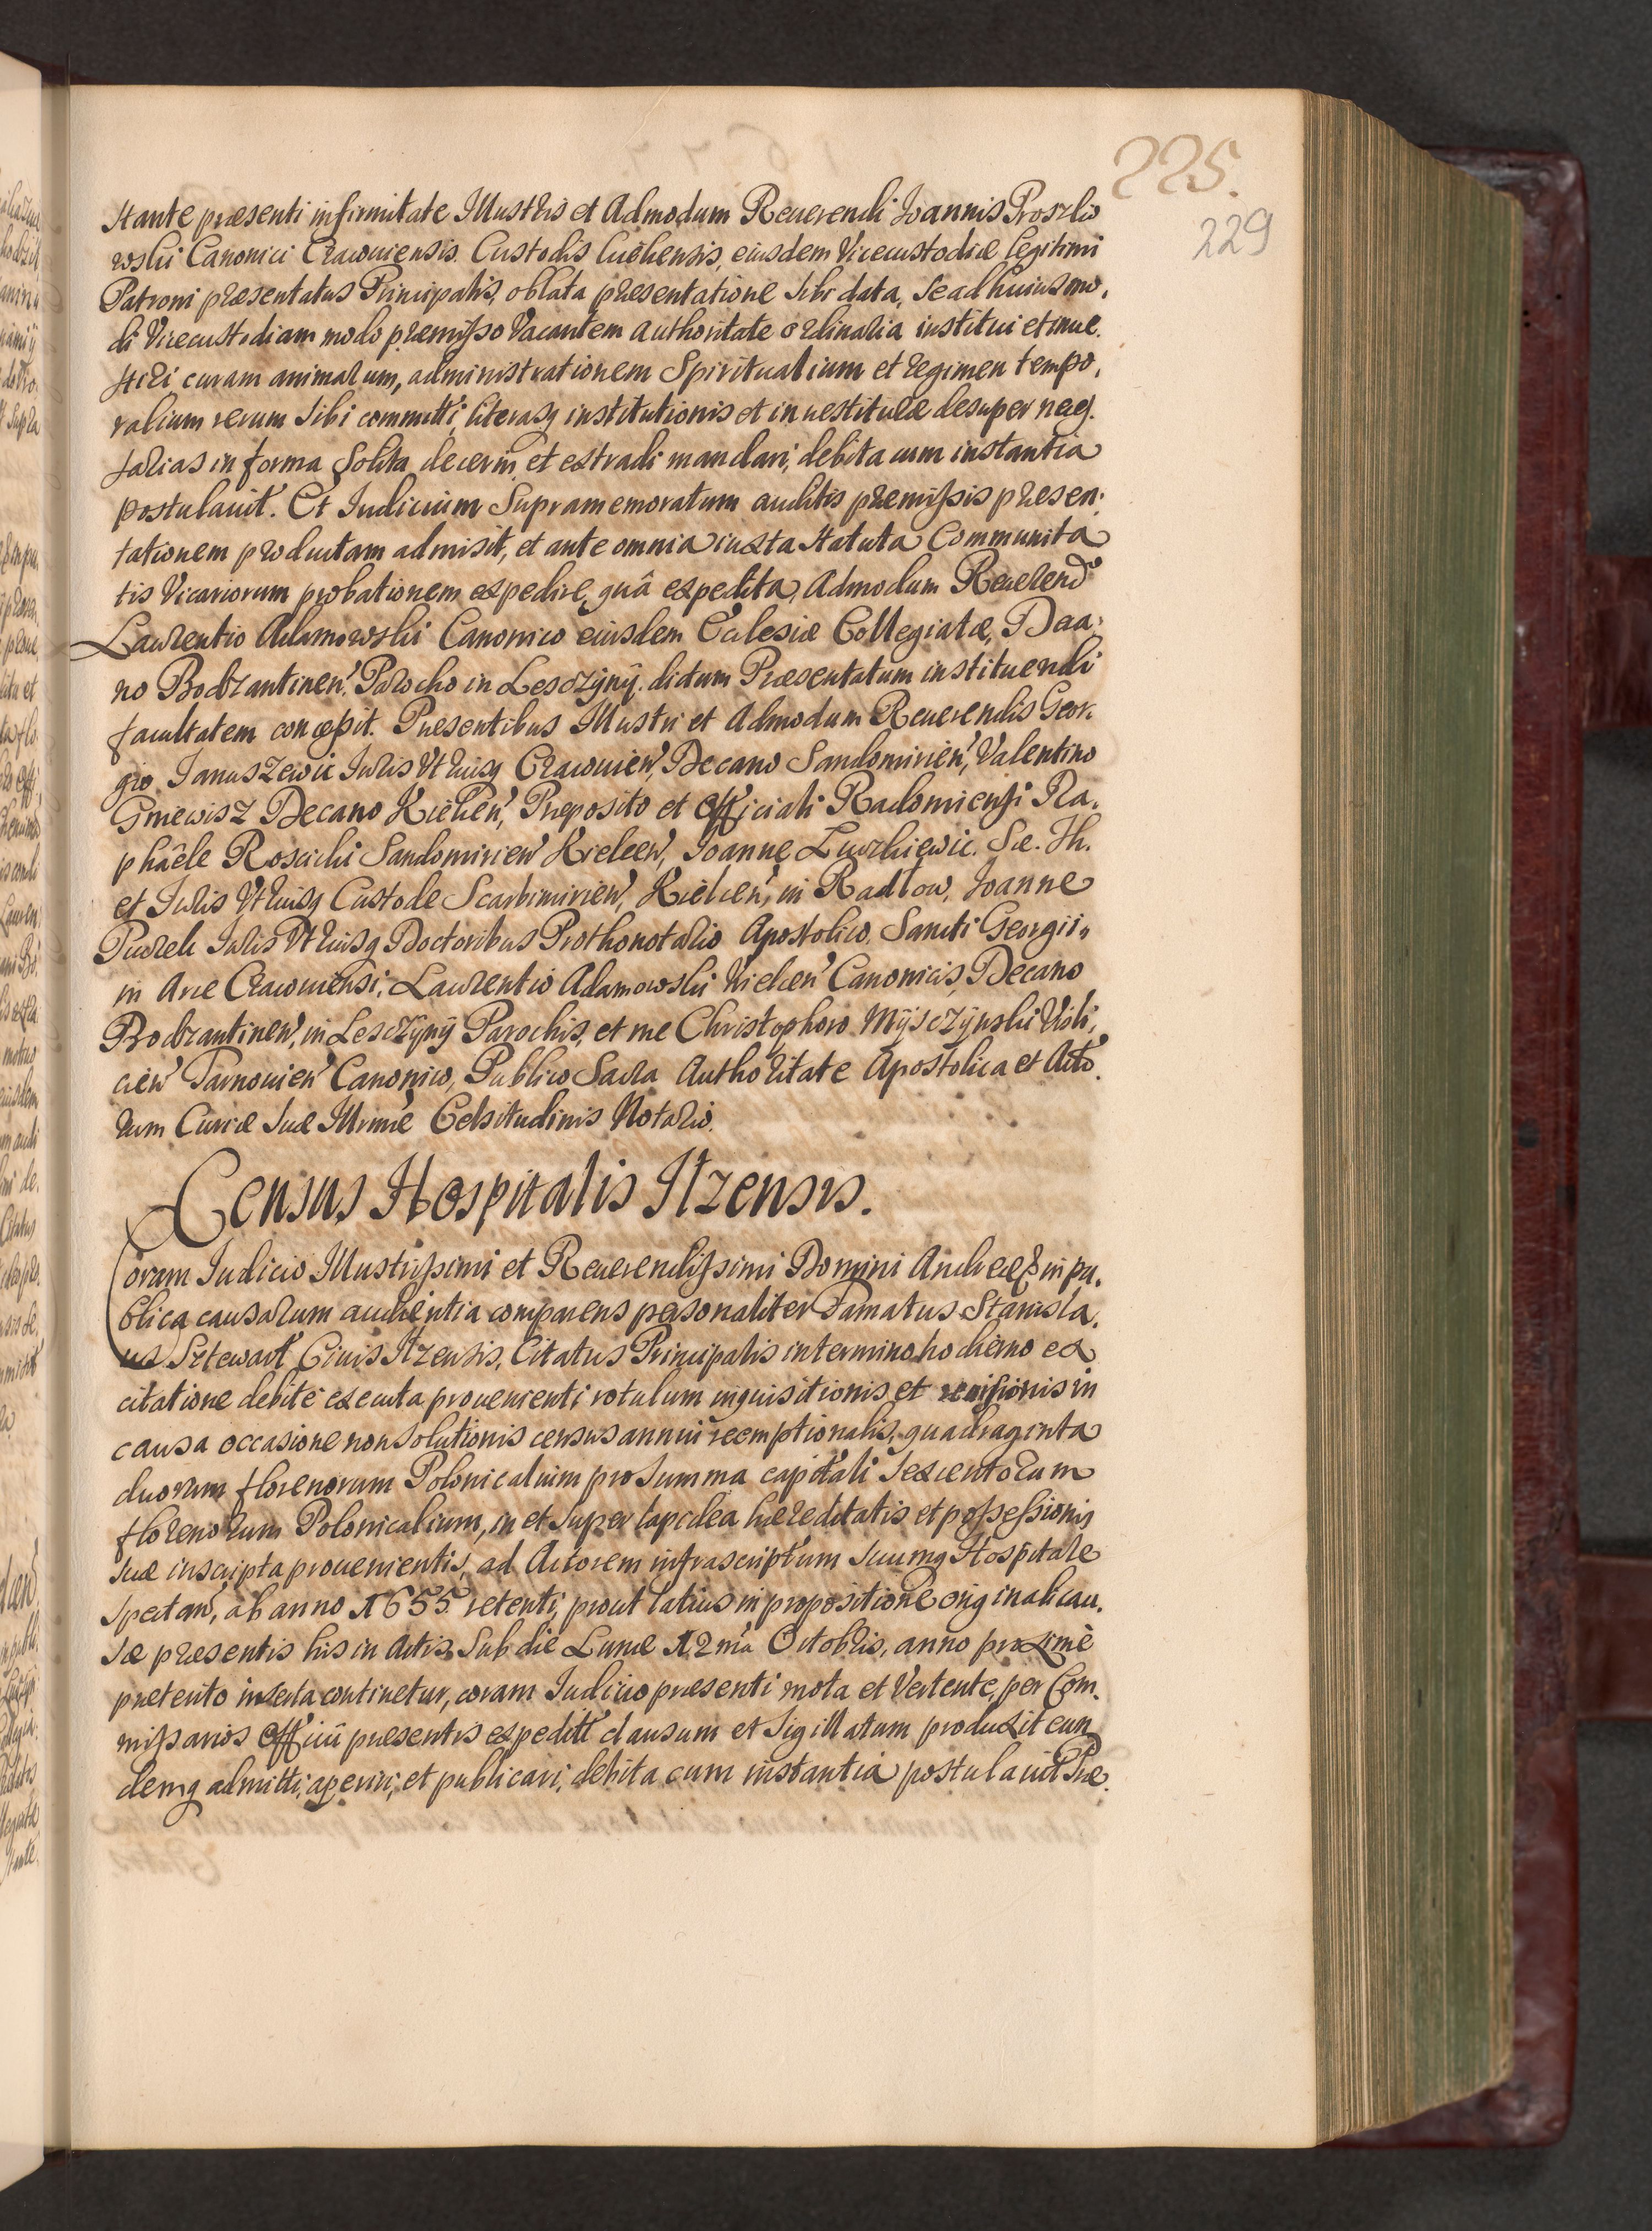 225.
229
stante præsenti infirmitate Illustris et Admodum Reuerendi Ioannis Proszko
wski Canonici Cracouiensis. Custodis Kielcensis, eiusdem Vicecustodiæ legitimi
Patroni præsentatus Principalis, oblata præsentatione sibi data, se ad huiusmo,
di Vicecustodiam modo præmisso Vacantem authoritate ordinaria institui et inue.
stiri curam animarum, administrationem Spiritualium et regimen tempo,
ralium rerum sibi committi, literasq institutionis et inuestituræ desuper neces.
sarias in forma solita decerni et extradi mandari, debita cum instantia
postulauit. Et Iudicium Supramemoratum auditis præmissis præsen,
tationem productam admisit, et ante omnia iuxta statuta Communita
tis Vicariorum probationem expedire, quâ expedita, Admodum Reuerendo
Laurentio Adamowski Canonico eiusdem Ecclesiæ Collegiatæ, Deca,
no Bodzantinen. Parocho in Lesczÿnÿ. dictum Præsentatum instituendi
facultatem concessit. Præsentibus Illustri et Admodum Reuerendis Geor.
gio Ianuszewic Iuris Vtriusq Cracouien, Decano Sandomirien, Valentino
Gniewisz Decano Kielcen, Præposito et Officiali Radomiensi Ra,
phâele Roscicki Sandomirien Kielcen, Ioanne Luzkiewic. Sæ. Th.
et Iuris Vtriusq Custode Scarbimirien, Kielcen, in Radłow, Ioanne
Pucrek Iuris Vtriusq Doctoribus Prothonotario Apostolico. Sancti Georgii
in Arce Cracouiensi, Laurentio Adamowski Kielcen Canonicis, Decano
Bodzantinen, in Lesczÿnÿ Parochis, et me Christophoro Mÿsczÿnski Visli,
cien Tarnouien Canonico, Publico Sacra Authoritate Apostolica et Acto,
rum Curiæ Suæ Illrmæ Celsitudinis Notario.
Census Hospitalis Ilzensis.
Coram Iudicio Illustrissimi et Reuerendissimi Domini Andreæ & in pu,
blica causarum audientia comparens personaliter Famatus Stanisla,
us Sztewart Ciuis Ilzensis, Citatus Principalis in termino hodierno ex
citatione debite executa prouenienti rotulum inquisitionis et reuisionis in
causa occasione non solutionis census annui reemptionalis, quadraginta
duorum florenorum Polonicalium pro summa capitali sexcentorum
florenorum Polonicalium, in et super lapidea hæreditatis et possessionis
suæ inscripta prouenientis, ad Actorem infrascriptum suumq Hospitale
spectan, ab anno 1655 retenti, prout latius in propositione originali cau,
sæ præsentis his in Actis, Sub die Lunæ 12ma Octobris, anno proximè
præterito inserta continetur, coram Iudicio præsenti mota et Vertente, per Com,
missarios Officii præsentis expediti clausum et Sigillatum produxit eun
demq admitti, aperiri, et publicari, debita cum instantia postulauit Præ.